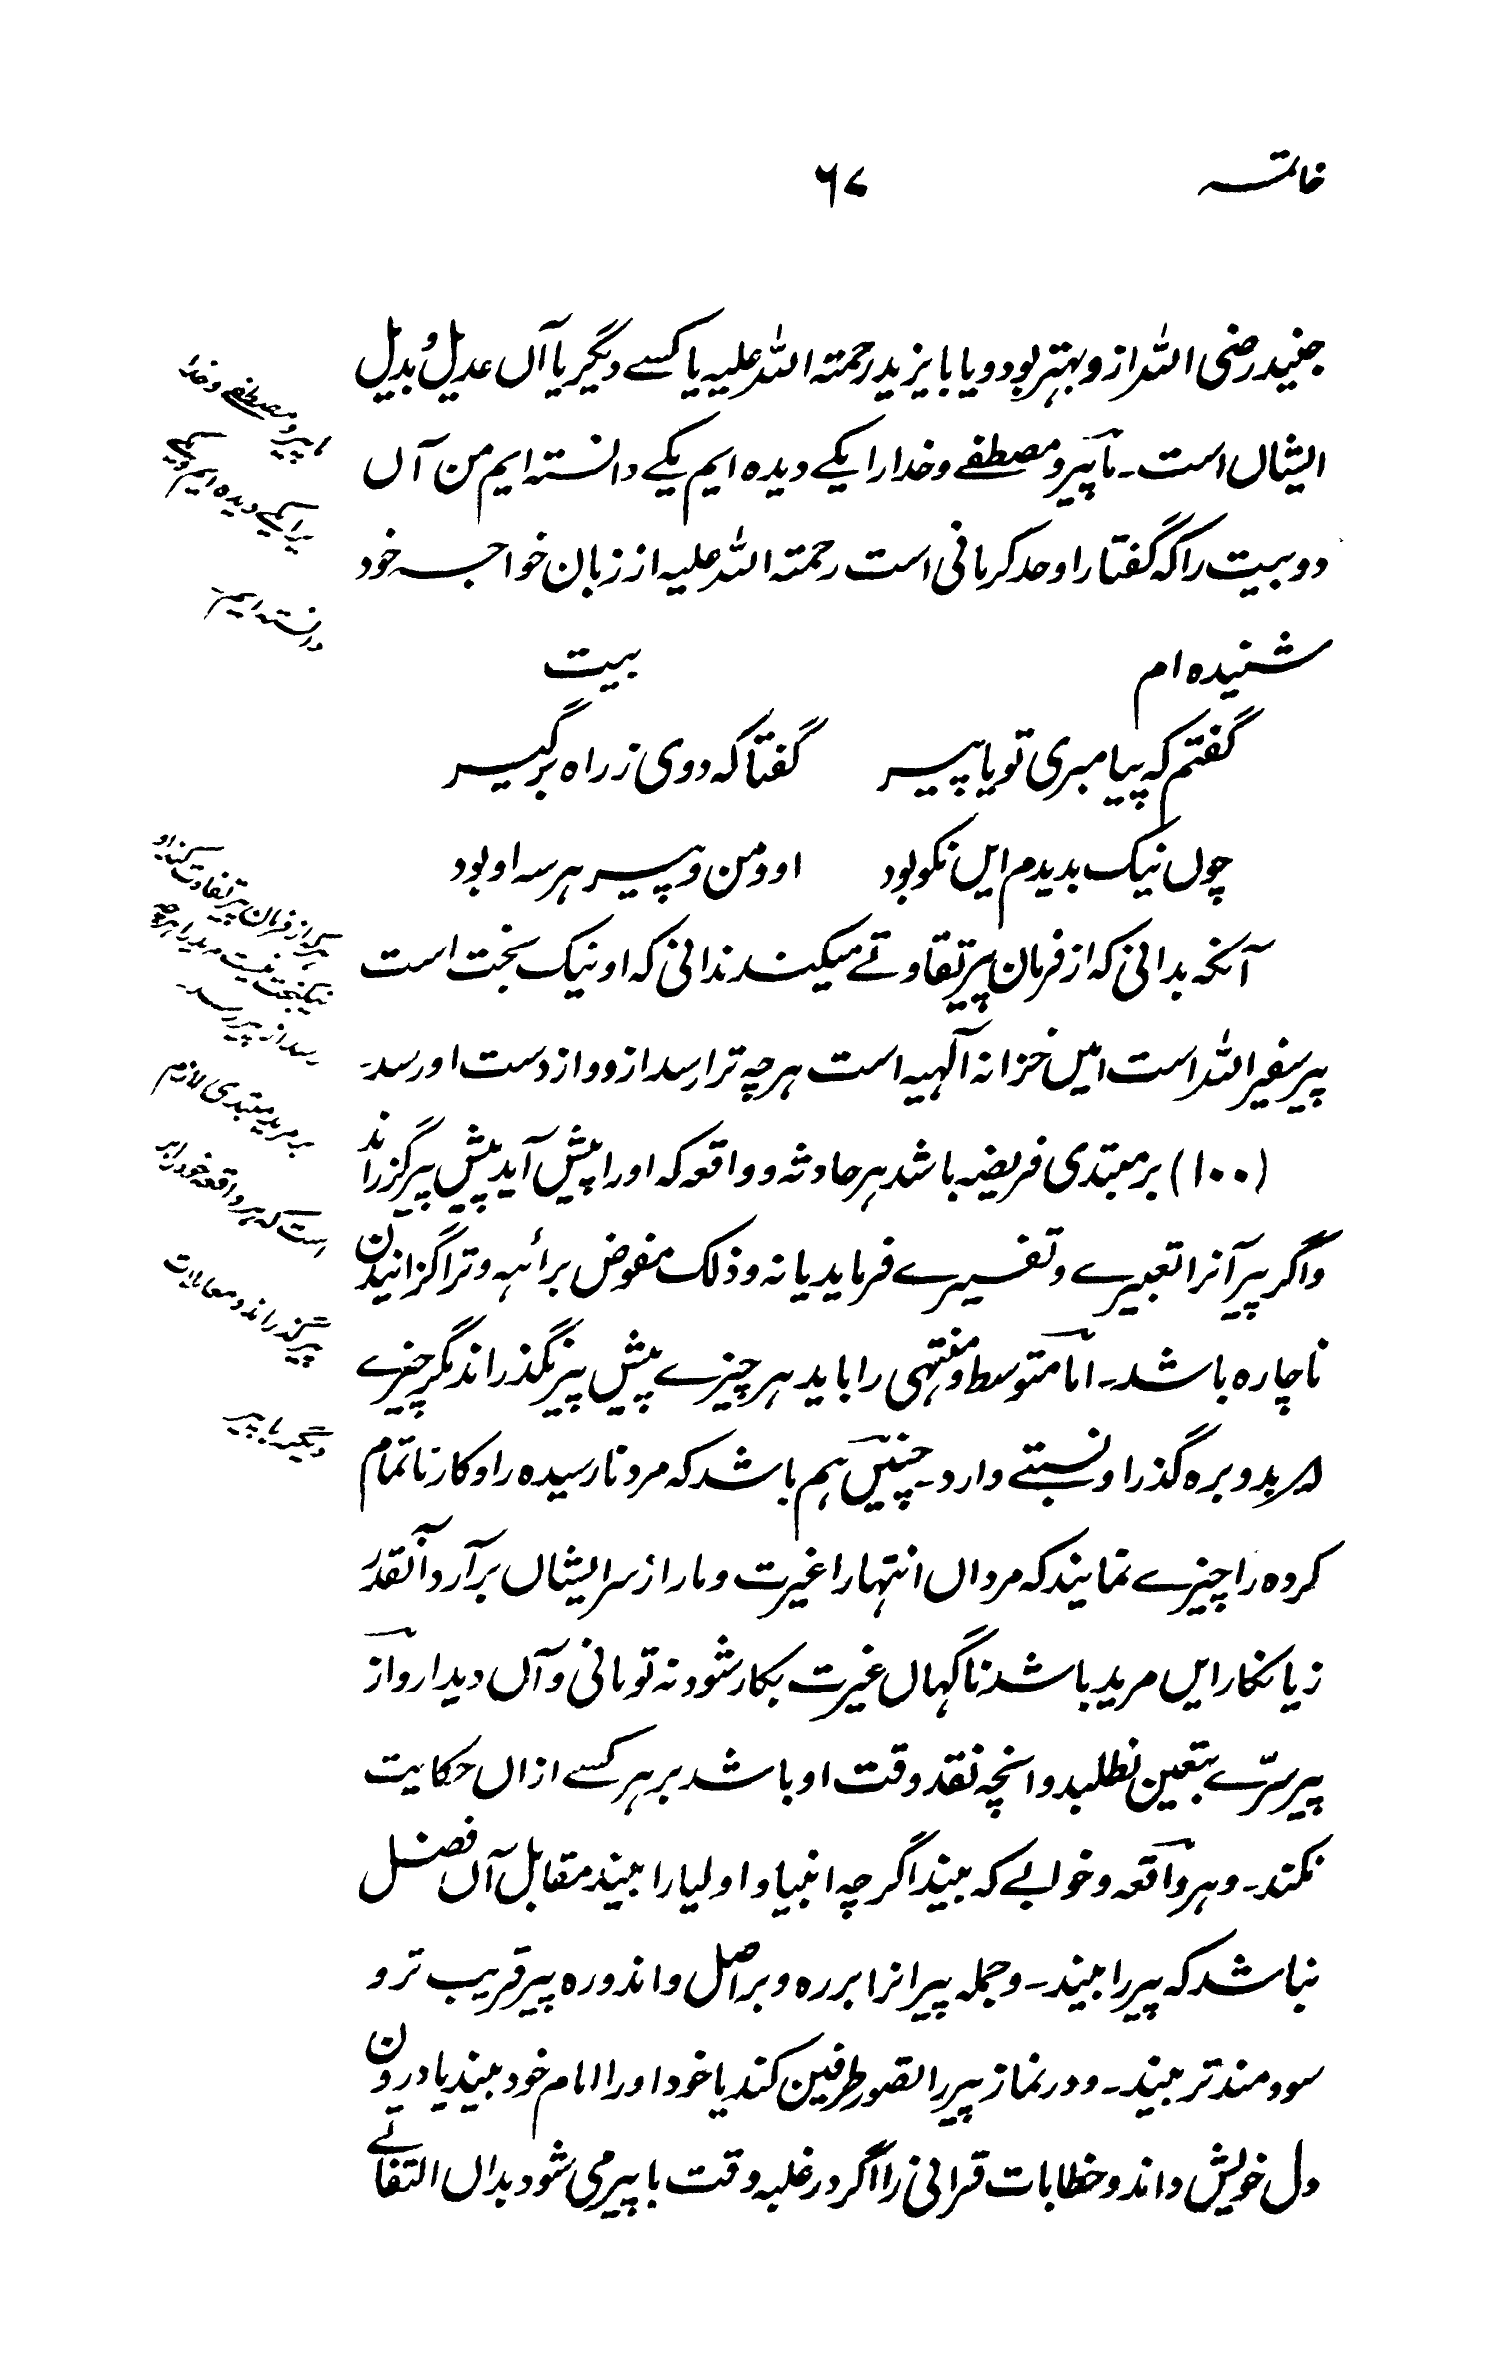 خاتمہ ۶۷
جنید رضی اللہ ازو بہتر بود ویا بایزید رحمتہ اللہ علیہ یا کسے دیگر یا آں عدیل و بدیل
ایشاں است۔ ما پیر و مصطفےٰ و خدا را یکے دیدہ ایم یکے دانستہ ایم من آں
دو بیت را کہ گفتار اوحد کرمانی است رحمتہ اللہ علیہ از زبان خواجہ خود
شنیدہ ام بیت
گفتم کہ پیامبری تو یا پیر گفتا کہ دوی ز راہ برگیر
چوں نیک بدیدم ایں نکو بود او و من و پیر ہر سہ او بود
آنکہ بدانی کہ از فرمان پیر تفاوتے میکند ندانی کہ او نیک بخت است
پیر سفیر اللہ است امین خزانہ آلہیہ است ہرچہ ترا رسد ازو و از دست او رسد۔
(۱۰۰) بر مبتدی فریضہ باشد ہر حادثہ و واقعہ کہ او را پیش آید پیش پیر گزراند
واگر پیر آنرا تعبیرے و تفسیرے فرماید یا نہ و ذلک مفوض برائہ و ترا گزانیدن
ناچارہ باشد۔ اما متوسط و منتہی را باید ہر چیزے پیش پیر نگذراند مگر چیزے
کہ بدو برہ گذر او نسبتے دارد۔ چنیں ہم باشد کہ مرد نارسیدہ را و کار ناتمام
کردہ را چیزے نمایند کہ مرداں انتہا را غیرت و مار از سر ایشاں برآرد آنقدر
زیانکار ایں مرید باشد ناگہاں غیرت بکار شود نہ تو مانی و آں دیدار و از
پیر سرّے بتعین نطلبد و انچہ نقد وقت او باشد بر ہر کسے ازاں حکایت
نکند۔ و ہر واقعہ و خوابے کہ بیند اگرچہ انبیا و اولیا را بیند مقابل آں فضل
نباشد کہ پیر را بیند۔ و جملہ پیرانرا بر رہ و بر اصل داند و رہ پیر قریب تر و
سودمند تر بیند۔ و در نماز پیر را تصور طرفین کند یا خود او را امام خود بیند یا درون
دل خویش داند و خطابات قرانی زا اگر در غلبہ وقت با پیر می شود بداں التفاتے
ما پیر و مصطفےٰ و خدا
را یکے دیدہ ایم و یکے
دانستہ ایم
ہر کہ از فرمان پیر تفاوت کند او
نیکبخت نیست مرید را ہرچہ
رسد از پیر رسد۔
بر مرید مبتدی لازم
است کہ ہر واقعہ خود را بر
پیر گذراند و معاملات
دیگر با پیر